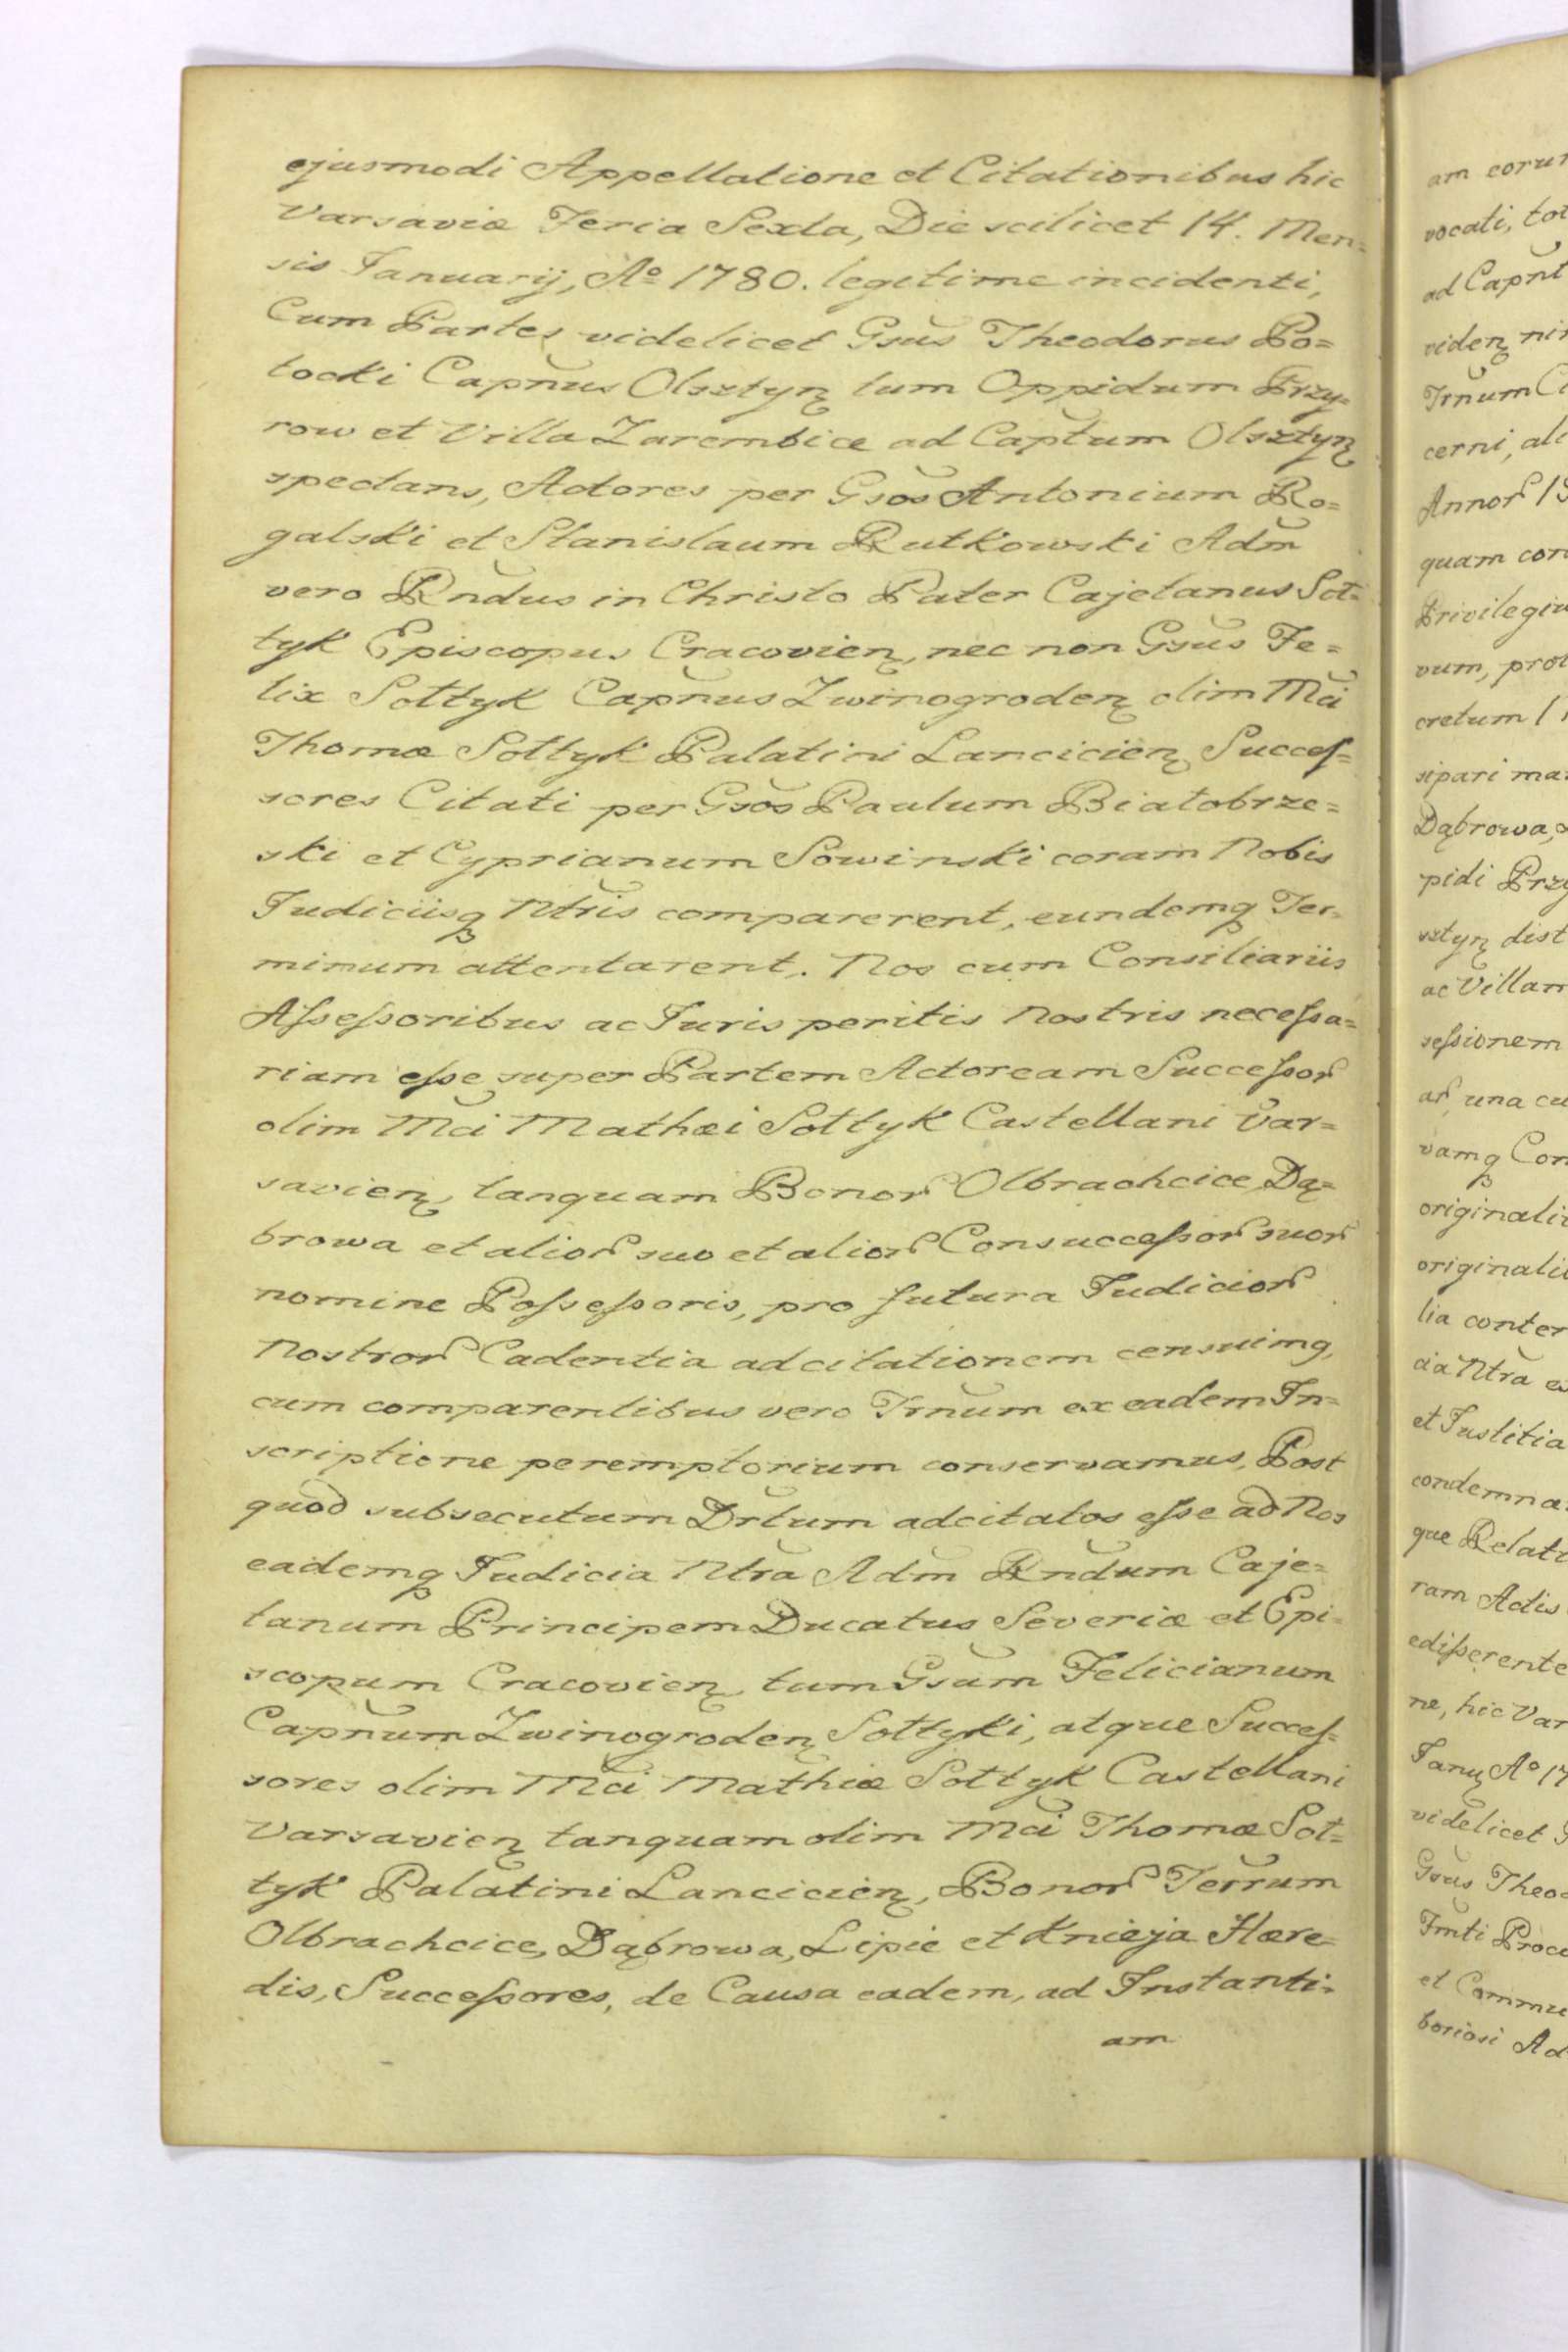 ejusmodi Appellatione et Citationibus hic
Varsaviæ Feria Sexta, Die scilicet 14. Men=
sis Januarij, Aº 1780. legitime incidenti,
Cum Partes videlicet Gsus Theodorus Po=
tocki Capñus Olsztyn̨ tum Oppidum Przy=
row et Villa Zarembice ad Captum Olsztyn̨
spectans, Actores per Gsos Antonium Ro=
galski et Stanislaum Rutkowski Adm̃
vero Rndus in Christo Pater Cajetanus Soł=
tyk Episcopus Cracovien̨, nec non Gsus Fe=
lix Sołtyk Capñus Zwinogroden̨ olim Mci
Thomæ Sołtyk Palatini Lancicien̨ Succeſ=
sores Citati per Gsos Paulum Białobrze=
ski et Cyprianum Sowinski coram Nobis
Judiciisq Ntris comparerent, eundemq Ter=
minum attentarent. Nos cum Consiliariis
Aſseſsoribus ac Juris peritis Nostris neceſsa=
riam eſse super Partem Actoream Succeſsor̃
olim Mci Mathæi Sołtyk Castellani Var=
savien̨ tanquam Bonor̃ Olbrachcice Dą=
browa et alior̃ suo et alior̃ Consucceſsor̃ suor̃
nomine Poſseſsoris, pro futura Judicior̃
Nostror̃ Cadentia adcitationem censuimq,
cum comparentibus vero Trnum ex eadem In=
scriptione peremptorium conservamus, Post
quod subsecutum Drtum adcitatos eſse ad Nos
eademq Judicia Ntra Adm̃ Rndum Caje=
tanum Principem Ducatus Severiæ et Epi=
scopum Cracovien̨ tum Gsum Felicianum
Capñum Zwinogroden̨ Sołtyki, atque Succeſ=
sores olim Mci Mathiæ Sołtyk Castellani
Varsavien̨ tanquam olim Mci Thomæ Soł=
tyk Palatini Lancicien̨, Bonor̃ Terrum
Olbrachcice, Dąbrowa, Lipie et Knieja Hære=
dis, Succeſsores, de Causa eadem, ad Instanti=
am
vocati,
ad Capñt
viden̨
Trnum
cerni,
Annor̃
quam
Privilegiu
vum,
cretum
sipari
Dąbrowa,
pidi
sztyn̨
ac Villam
seſsionem
ar̃ una
vamq
originali
originali
lia
cia Ntra
et Justitia
condemna
que
ram Actis
ediſserente
ne, hic
Janu̧ Aº
videlicet
Gsus
Imti
et
boriosi